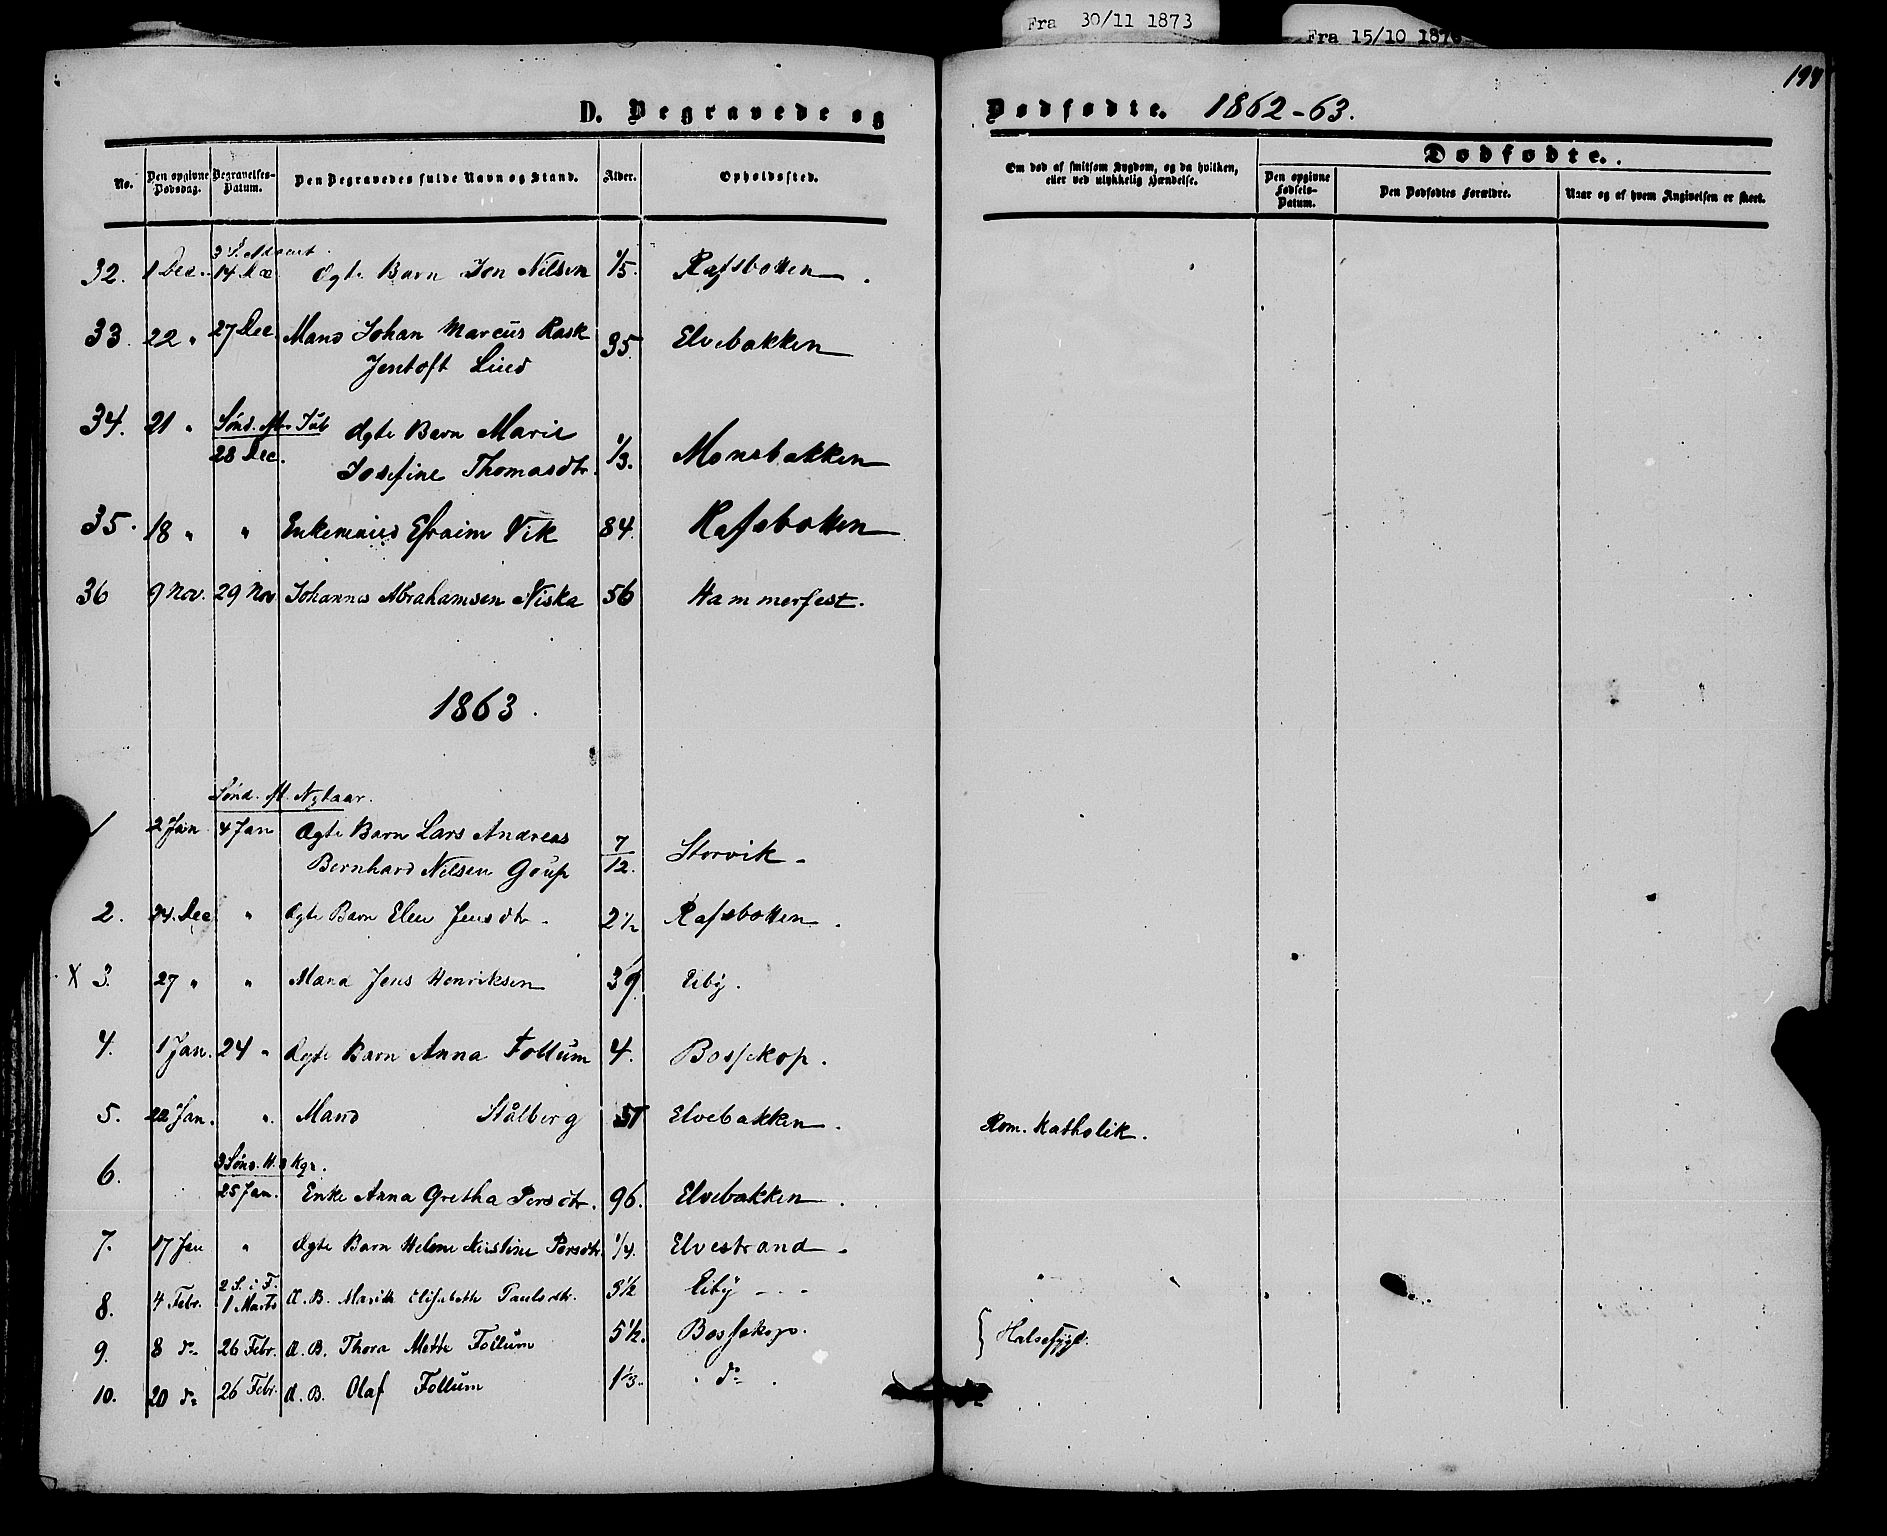 Fra 30/11 1873
Fra 15/10 187
D. Begravede og Dødfødte. 1862-63.
No. | Den opgivne Dødsdag. | Begravelses-Datum. | Den Begravedes fulde Navn og Stand. | Alder. | Opholdssted. | Om død af smitsom Sygdom, og da hvilken, eller ved ulykkelig Hændelse. | Dødfødte.
Den opgivne Fødsels-Datum. | Den Dødfødtes Forældre. | Naar og af hvem Angivelsen er skeet.
3 S. Advent
32. 1 Dec. 14 Dec Ægte Barn Jon Nilsen 1/5. Rafsbotten.
33. 22 " 27 Dec. Mand Johan Marcus Rask 35. Elvebakken
Jentoft Lind
34. 21 " Sønd. M. Jul Ægte Barn Marie
28 Dec. Josefine Thomasdtr. 1/3. Monsbakken
35. 18 " " Enkemand Efraim Vik 84. Rafsbotten
36 9 Nov. 29 Nov Johannes Abrahamsen Niska 56 Hammerfest.
1863.
Sønd. M. Nytaar.
1 2 Jan 4 Jan Ægte Barn Lars Andreas 7/12. Storvik
Bernhard Nilsen Goup
2. 24. Dec " Ægte Barn Elen Jensdtr. 2 1/2 Rafsbotten.
X 3. 27 " " Mand Jens Henriksen 39 Eiby.
4. 1 Jan. 24 " Ægte Barn Anna Follum 4. Bossekop.
5. 22 Jan. " Mand Stålberg 51 Elvebakken. Rom. Katholik.
3 Sønd. H. 3 Kgr.
6. 25 Jan. Enke Anna Gretha Persdtr. 96. Elvebakken.
7. 17 Jan " Ægte Barn Helene Kirstine Persdtr 1/4. Elvestrand.
2 S. i F.
8. 4 Febr. 1 Marts Æ. B. Marith Elisabeth Paulsdtr. 3 1/2 Eiby
9. 8 do 26 Febr. Æ. B. Thora Mette Follum 5 1/2. Bossekop. Halsesyge.
10. 20 do 26 Febr. Æ. B. Olaf Follum 1 1/3. do